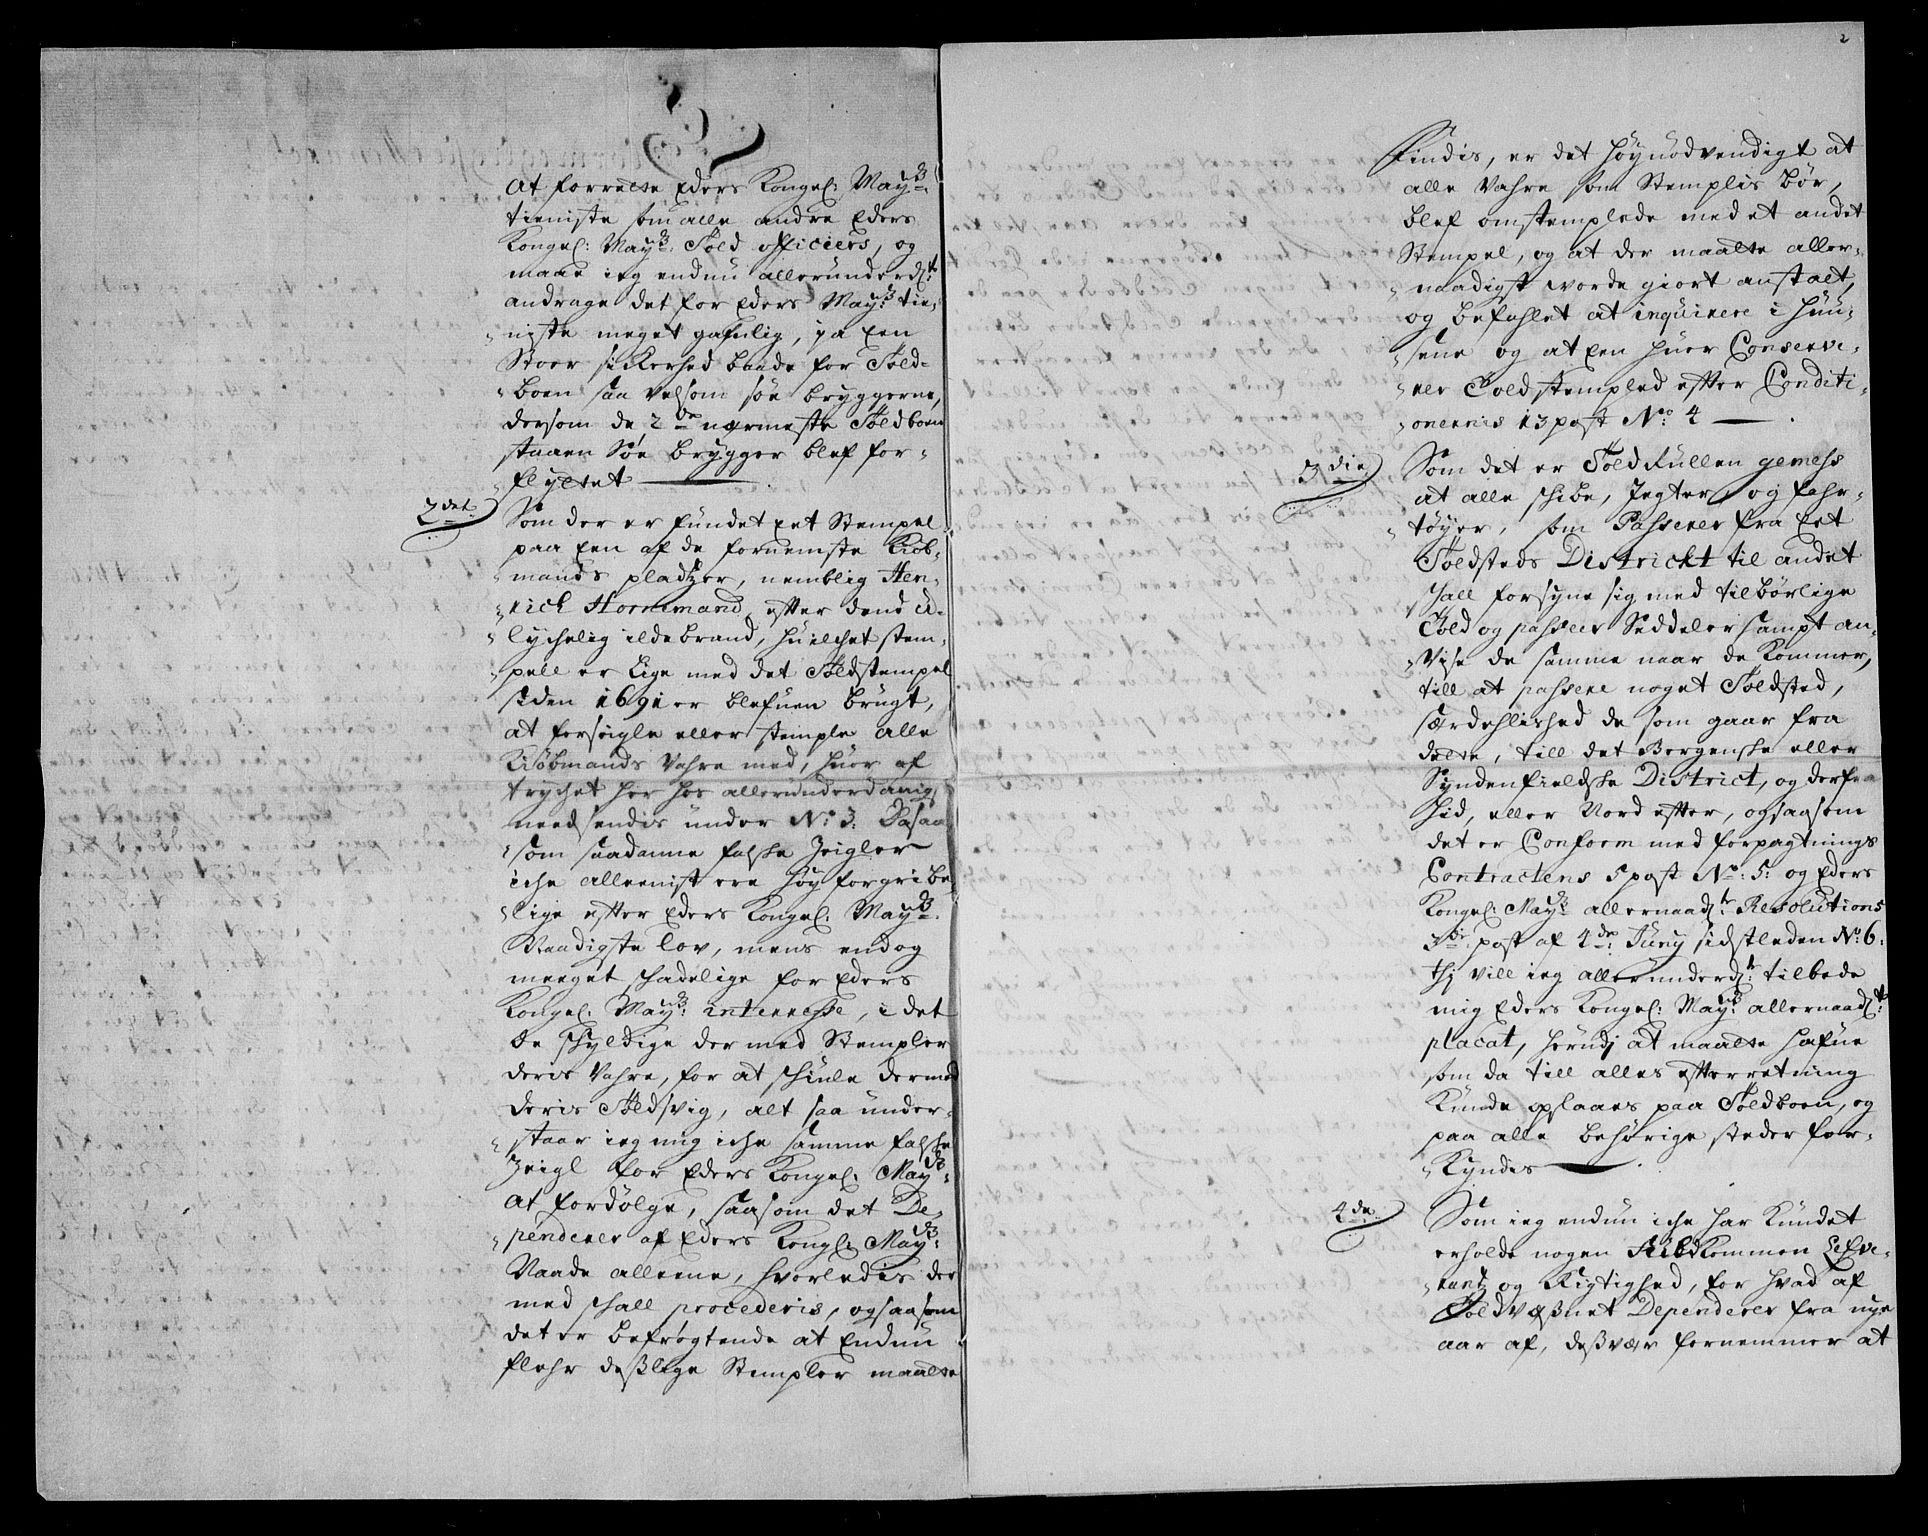 at forrette Eders Kongel: May:ts
tieniste som alle andre Eders
Kongel: May:ts Told officiers, og
maae ieg endnu allerunderd:t
andrage det for Eders May:ts tie-
niste meget gafnlig, ja een
Stoer sikkerhed baade for Told-
boen saa velsom söe bryggerne,
dersom de 2de nærmeste Toldboen
staaen Söe brygger blef for-
flyttet
2det
Som der er fundet eet Stempel
paa een af de fornemste Kiöb-
mands pladtzer, nemblig Hen-
rich Hornemand, efter dend u-
lychelig ildebrand, huilchet stem-
pell er Lige med det Toldstempel
siden 1691 er blefuen brugt,
at forseigle eller stemple alle
Kiöbmands Vahre med, huor af
trychet her hos allerunderdanig
needsendis under No 3. Da saa
som saadanne falske Zeigler
iche alleenist ere høy forgribe-
lige efter Eders Kongel: May:ts
Naadigste lov, mens endog
meeget skadelige for Eders
Kongel: May:ts interresse, i det
de skyldige der med Stempler
deris Vahre, for at skiule dermed
deris Toldsvig, alt saa under-
staar ieg mig iche samme falske
Zeigl for Eders Kongel: May:ts
at fordölge, saasom det De-
penderer af Eders Kongl: May:ts
Naade alleene, hvorledis der
med skall procederis, ogsaasom
det er befrögtende at Endnu
flehr deßlige Stempler maatte
2
findis, er det høynødvendigt at
alle Vahre som Stemplis bør,
blef omstemplede med et andet
Stempel, og at der maatte aller-
naadigst worde giort anstalt,
og befahlet at inqvirere i Huu-
sene og at een huer Conserve-
rer Toldstempled efter Conditi-
onernis 13 post No: 4
3die
Som det er Told Rullen gemess
at alle skibe, Jegter og fahr-
töyer, som Passerer fra eet
Toldsteds District til andet
skall forsyne sig med tilbørlige
Told og passeer Seddeler sampt an-
Vise de samme naar de Kommer,
till at passere noget Toldsted,
særdehlished de som gaar fra
dette, till det Bergenske eller
Syndenfieldske District, og derfra
hid, eller Nord efter, ogsaasom
det er Conform med forpagtnings
Contractens 5 post No: 5: og Eders
Kongel: May:ts allernaad:te Resolutions
3die post af 4de Juny sidstleden No: 6:
thj vill ieg allerunderd:t tilbede
mig Eders Kongel: May:ts allernaad:te
placat, herudj at maatte hafue
som da till alles efterretning
kunde opslaaes paa Toldboen, og
paa alle behörige steder for-
kyndis
4de
Som ieg endnu iche har kundet
erholde nogen fuldkommen Lefve-
rantz og Rigtighed, for hvad af
Toldvæßnet Dependerer fra nye
aar af, deßvær fornemmer at